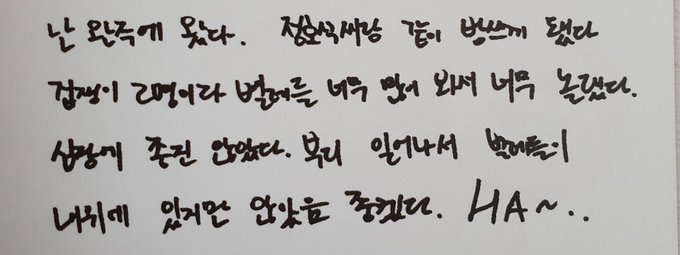 난 완주에 왔다. 정호석씨랑 같이 방쓰게 됐다
겁쟁이 2명이라 벌레를 너무 많이 봐서 너무 놀랬다.
심장에 좋진 않았다. 부디 일어나서 벌레들이
내위에 있지만 않았음 좋겠다. HA~..